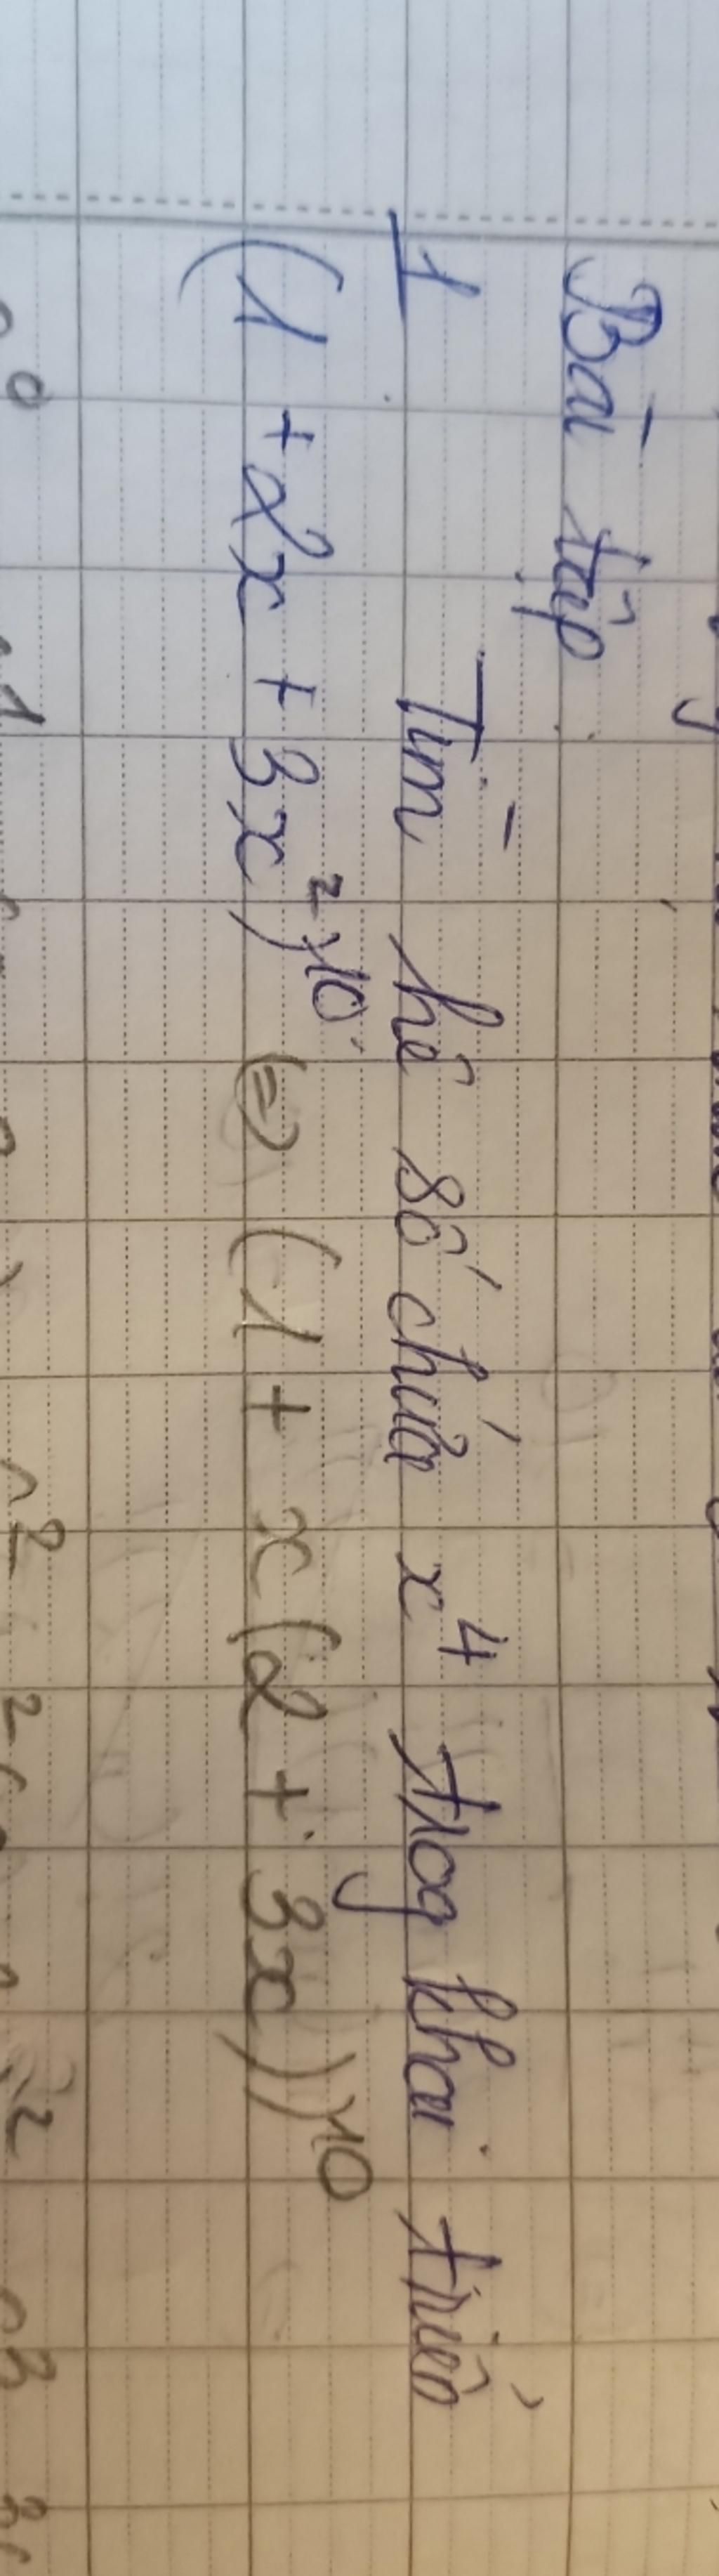 Bài tập
1 Tìm hệ số chứa x⁴ trog khai triển
(1 + 2x + 3x²)¹⁰ (=) (1 + x(2 + 3x))¹⁰